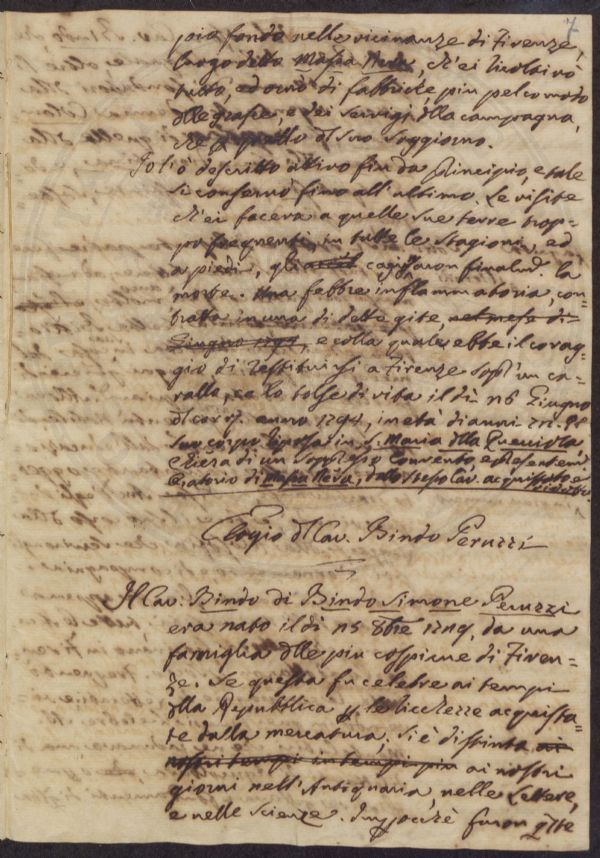 7
pio fondo nelle vicinanze di Firenze,
luogo detto Massa Neva, ch'ei lasciò
tutto, ed ornò di fabbriche, più pel comodo
delle grascie, e dei servigi della campagna,
che p. quello del suo soggiorno.
descritto attivo fin da principio, e tale
si conservò fino all'ultimo. Le visite
ch'ei faceva a quelle sue terre trop-
po frequenti, in tutte le stagioni, ed
a piedi, gli cagionaron finalm. la
morte. Una febbre inflammatoria, con-
tratta in una di dette gite, nel mese di
Giugno 1794, e colla quale ebbe il corag-
gio di restituirsi a Firenze sopr'un ca-
vallo, ce lo tolse di vita il dì 26 Giugno
del corr. anno 1794, in età di anni
suo corpo in S. Maria della Querciola
Chiesa di un soppresso Convento, e present. em.
Oratorio di Massa Neva, dallo stesso Cav. acquistato e
Elogio del Cav. Bindo Peruzzi
Il Cav. Bindo di Bindo Simone Peruzzi
era nato il dì 25 8bre 1729, da una
famiglia delle più cospicue di Firen-
ze. Se questa fu celebre ai tempi
della Repubblica p. le ricchezze acquista-
te dalla mercatura, si è distinta ai
nostri tempi in tempi più ai nostri
giorni nell'Antiquaria nelle Lettere,
e nelle Scienze. Imperocchè furon